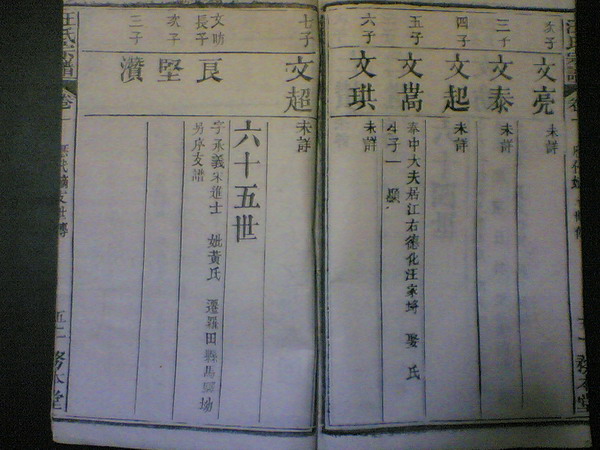 次子 文亮 未詳
三子 文泰 未詳
四子 文起 未詳
五子 文嵩 泰中大夫居江右德化汪家 娶 氏
子一 顯
六子 文珙 未詳
七子 文超 未詳
六十五世
文昉長子 良 字承義宋進士 妣黃氏 遷羅田縣馬 坳
另序支譜
次子 堅
三子 瓚
汪氏宗譜 卷一
五一 務本堂